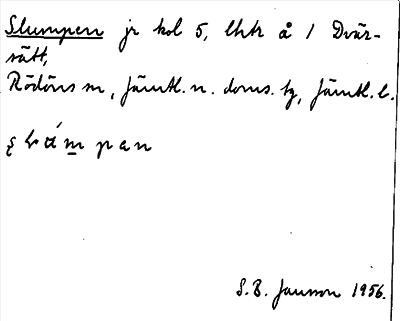 Slumpen jr kol 5, lhtr å 1 Dvär-
sätt,
Rödöns sn, Jämtl. n. doms. tg, Jämtl. l.
pan
S. B. Jansson 1956.